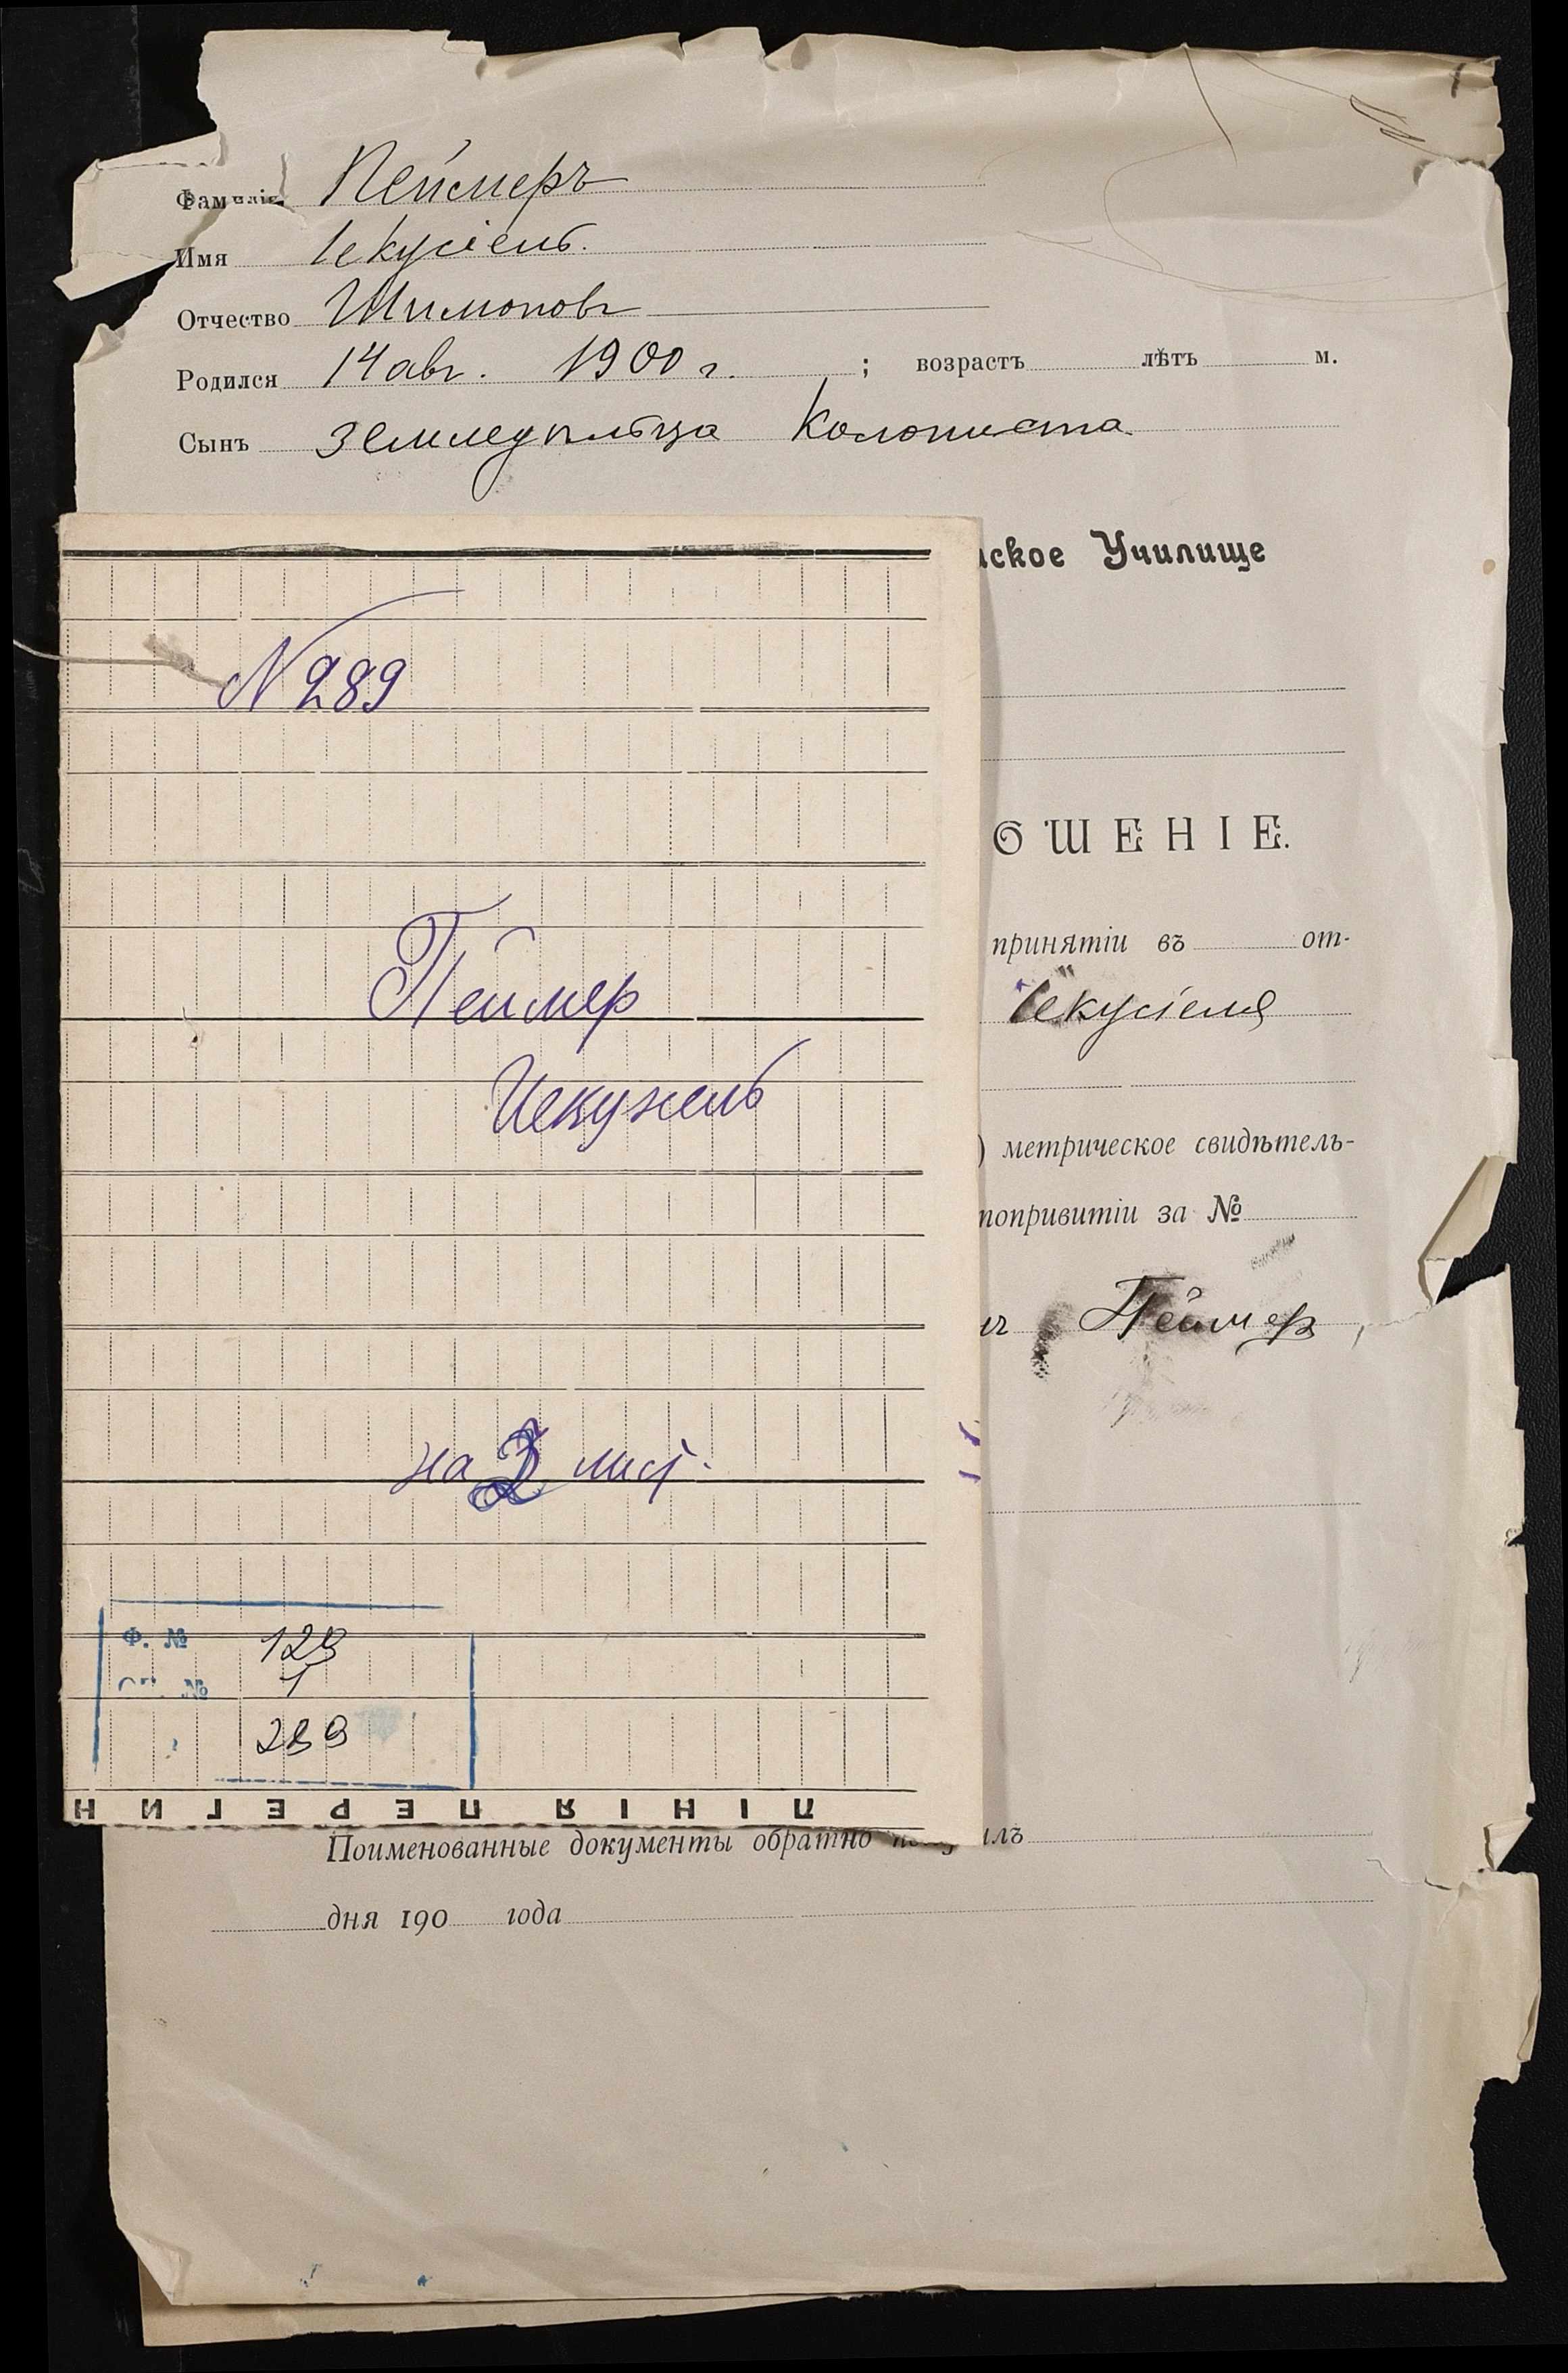 Фамилія Пеймеръ
Имя Іекусіель.
Отчество Шимоновъ
Родился 14 авг. 1900 г. ; возрастъ лѣтъ м.
Сынъ земледѣльца Колониста.
ское Училище
ОШЕНІЕ.
принятіи въ от-
Іекусіеля
) метрическое свидѣтель-
попривитіи за №
Пеймер
N 289
Пеймер
Иекужель
на 2 лист.
Ф. № 129
ОП. № 1
289
ЛІНІЯ ПЕРЕГИН
Поименованные документы обратно илъ
дня 190 года